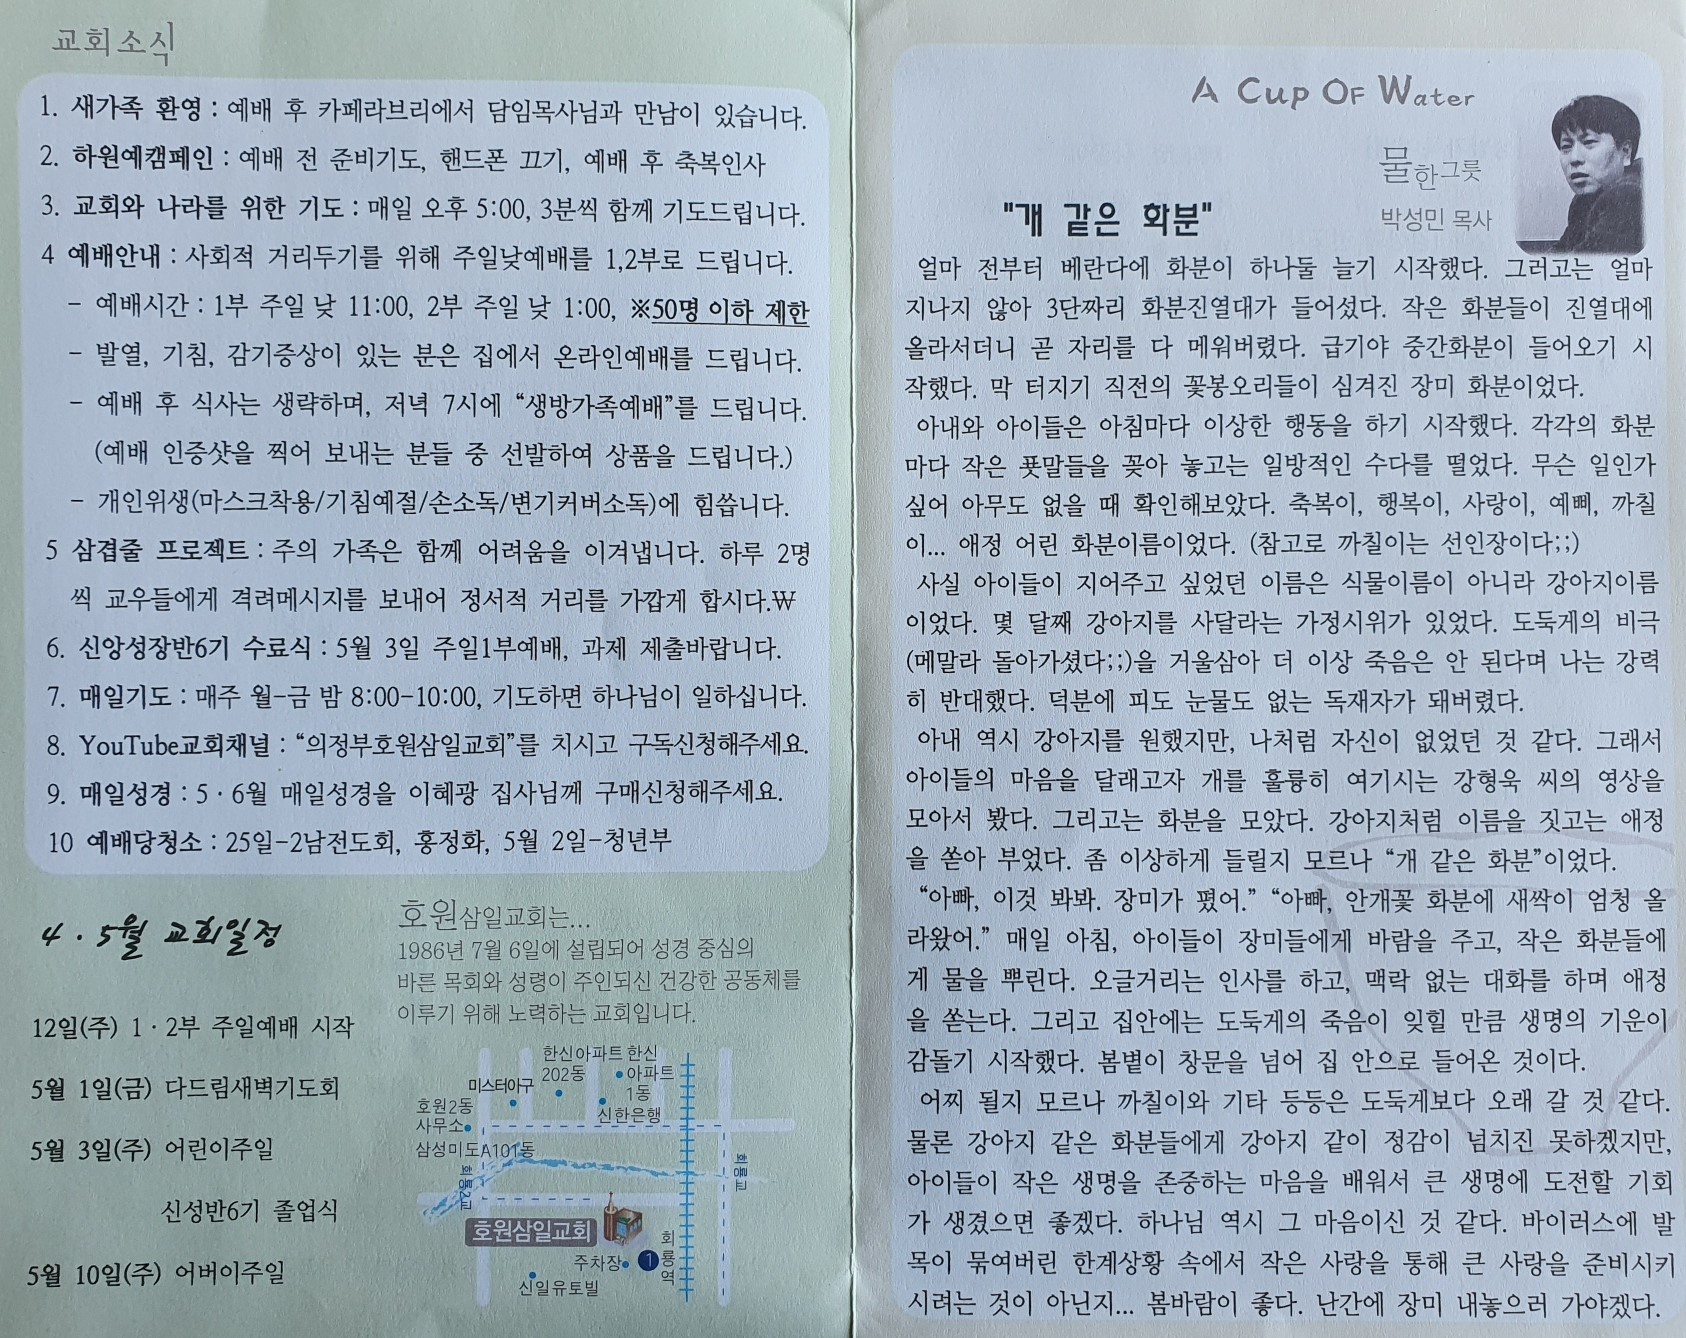 교회소식
1. 새가족 환영 : 예배 후 카페라브리에서 담임목사님과 만남이 있습니다.
2. 하원예캠페인 : 예배 전 준비기도, 핸드폰 끄기, 예배 후 축복인사
3. 교회와 나라를 위한 기도 : 매일 오후 5:00, 3분씩 함께 기도드립니다.
4 예배안내 : 사회적 거리두기를 위해 주일낮예배를 1,2부로 드립니다.
- 예배시간 : 1부 주일 낮 11:00, 2부 주일 낮 1:00, ※50명 이하 제한
- 발열, 기침, 감기증상이 있는 분은 집에서 온라인예배를 드립니다.
- 예배 후 식사는 생략하며, 저녁 7시에 “생방가족예배”를 드립니다.
(예배 인증샷을 찍어 보내는 분들 중 선발하여 상품을 드립니다.)
- 개인위생(마스크착용/기침예절/손소독/변기커버소독)에 힘씁니다.
5 삼겹줄 프로젝트 : 주의 가족은 함께 어려움을 이겨냅니다. 하루 2명
씩 교우들에게 격려메시지를 보내어 정서적 거리를 가깝게 합시다.₩
6. 신앙성장반6기 수료식 : 5월 3일 주일1부예배, 과제 제출바랍니다.
7. 매일기도 : 매주 월-금 밤 8:00-10:00, 기도하면 하나님이 일하십니다.
8. YouTube교회채널 : “의정부호원삼일교회”를 치시고 구독신청해주세요.
9. 매일성경 : 5 · 6월 매일성경을 이혜광 집사님께 구매신청해주세요.
10 예배당청소 : 25일-2남전도회, 홍정화, 5월 2일-청년부
4 · 5월 교회일정
12일(주) 1 · 2부 주일예배 시작
5월 1일(금) 다드림새벽기도회
5월 3일(주) 어린이주일
신성반6기 졸업식
5월 10일(주) 어버이주일
호원삼일교회는...
1986년 7월 6일에 설립되어 성경 중심의
바른 목회와 성령이 주인되신 건강한 공동체를
이루기 위해 노력하는 교회입니다.
한신아파트
202동
한신
아파트
1동
미스터아구
신한은행
호원2동
사무소
삼성미도A101동
회룡2교
회룡교
호원삼일교회
주차장
1
회룡역
신일유토빌
A Cup Of Water
물한그릇
박성민 목사
"개 같은 화분"
얼마 전부터 베란다에 화분이 하나둘 늘기 시작했다. 그러고는 얼마
지나지 않아 3단짜리 화분진열대가 들어섰다. 작은 화분들이 진열대에
올라서더니 곧 자리를 다 메워버렸다. 급기야 중간화분이 들어오기 시
작했다. 막 터지기 직전의 꽃봉오리들이 심겨진 장미 화분이었다.
아내와 아이들은 아침마다 이상한 행동을 하기 시작했다. 각각의 화분
마다 작은 푯말들을 꽂아 놓고는 일방적인 수다를 떨었다. 무슨 일인가
싶어 아무도 없을 때 확인해보았다. 축복이, 행복이, 사랑이, 예삐, 까칠
이... 애정 어린 화분이름이었다. (참고로 까칠이는 선인장이다;;)
사실 아이들이 지어주고 싶었던 이름은 식물이름이 아니라 강아지이름
이었다. 몇 달째 강아지를 사달라는 가정시위가 있었다. 도둑게의 비극
(메말라 돌아가셨다;;)을 거울삼아 더 이상 죽음은 안 된다며 나는 강력
히 반대했다. 덕분에 피도 눈물도 없는 독재자가 돼버렸다.
아내 역시 강아지를 원했지만, 나처럼 자신이 없었던 것 같다. 그래서
아이들의 마음을 달래고자 개를 훌륭히 여기시는 강형욱 씨의 영상을
모아서 봤다. 그리고는 화분을 모았다. 강아지처럼 이름을 짓고는 애정
을 쏟아 부었다. 좀 이상하게 들릴지 모르나 “개 같은 화분”이었다.
“아빠, 이것 봐봐. 장미가 폈어.” “아빠, 안개꽃 화분에 새싹이 엄청 올
라왔어.” 매일 아침, 아이들이 장미들에게 바람을 주고, 작은 화분들에
게 물을 뿌린다. 오글거리는 인사를 하고, 맥락 없는 대화를 하며 애정
을 쏟는다. 그리고 집안에는 도둑게의 죽음이 잊힐 만큼 생명의 기운이
감돌기 시작했다. 봄볕이 창문을 넘어 집 안으로 들어온 것이다.
어찌 될지 모르나 까칠이와 기타 등등은 도둑게보다 오래 갈 것 같다.
물론 강아지 같은 화분들에게 강아지 같이 정감이 넘치진 못하겠지만,
아이들이 작은 생명을 존중하는 마음을 배워서 큰 생명에 도전할 기회
가 생겼으면 좋겠다. 하나님 역시 그 마음이신 것 같다. 바이러스에 발
목이 묶여버린 한계상황 속에서 작은 사랑을 통해 큰 사랑을 준비시키
시려는 것이 아닌지... 봄바람이 좋다. 난간에 장미 내놓으러 가야겠다.